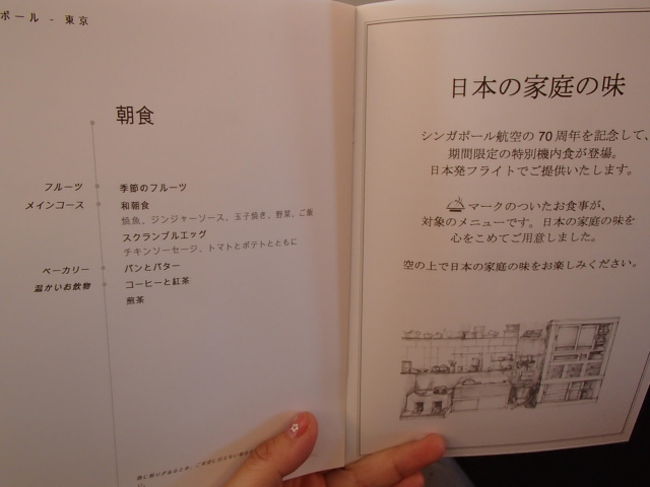 ポール - 東京
朝食
フルーツ 季節のフルーツ
メインコース 和朝食
焼魚、ジンジャーソース、玉子焼き、野菜、ご飯
スクランブルエッグ
チキンソーセージ、トマトとポテトとともに
ベーカリー パンとバター
温かいお飲物 コーヒーと紅茶
煎茶
日本の家庭の味
シンガポール航空の 70 周年を記念して、
期間限定の特別機内食が登場。
日本発フライトでご提供いたします。
マークのついたお食事が、
対象のメニューです。日本の家庭の味を
心をこめてご用意しました。
空の上で日本の家庭の味をお楽しみください。